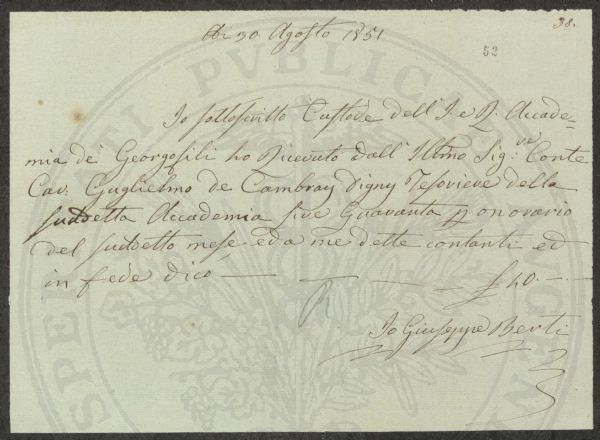 38.
A dì 30. Agosto 1851
52
Io sottoscritto Custode dell'I. e R. Accade=
mia de' Georgofili ho Ricevuto dall'Illmo Sig.re Conte
Cav. Guglielmo de Cambray Digny Tesoriere della
suddetta Accademia lire Quaranta p onorario
del suddetto mese, ed a me dette contanti ed
in fede dico — — — — £ 40. —
Io Giuseppe Berti